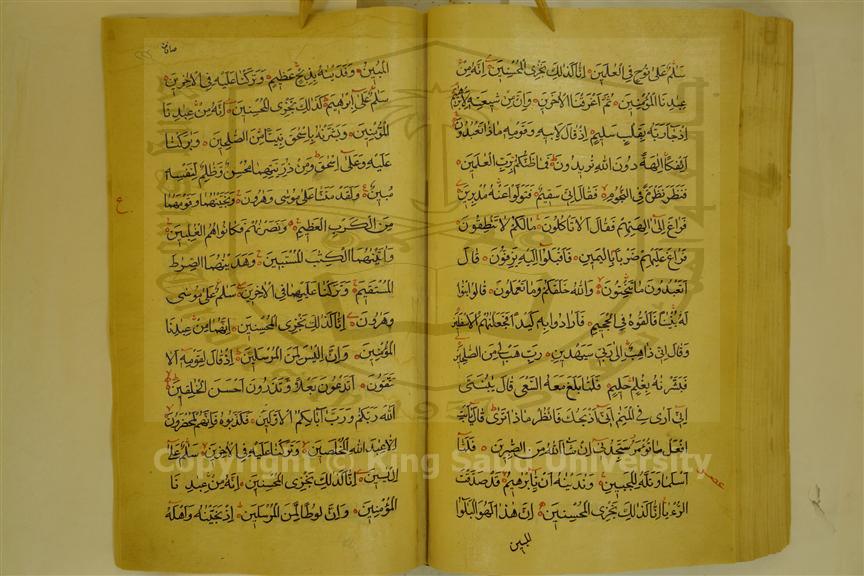 سلم على نوح في العلمين انا كذلك نجزى المحسنين انه من
عبدنا المؤمنين ثم اغرقنا الاخرين وان من شيعته لابرهيم
اذ جا ربه بقلب سليم اذ قال لابيه وقومه ماذا تعبدون
ائفكا الهة دون الله تريدون فما ظنكم برب العلمين
فنظر نظرة في النجوم فقال اني سقيم فتولوا عنه مدبرين
فراغ الى الهتهم فقال الا تاكلون مالكم لا تنطقون
فراغ عليهم ضربا باليمين فاقبلوا اليه يزفون قال
اتعبدون ما تنحتون والله خلقكم وما تعملون قالوا ابنوا
له بنيا فالقوه في الجحيم فارادوا به كيدا فجعلنهم الاسفلين
وقال اني ذاهب الى ربي سيهدين رب هب لي من الصلحين
فبشرنه بغلم حليم فلما بلغ معه السعى قال يبنى
اني ارى في المنام اني اذبحك فانظر ماذا ترى قال يابت
افعل ما تؤمر ستجدني ان شا الله من الصبرين فلما
اسلما وتله للجبين وندينه ان يابرهيم قد صدقت
الرءيا انا كذلك نجزى المحسنين ان هذا لهو البلوا
المبين
المبين وفدينه بذبح عظيم وتركنا عليه في الاخرين
سلم على ابرهيم كذلك نجزى المحسنين انه من عبدنا
المؤمنين وبشرنه باسحق نبيا من الصلحين وبركنا
عليه وعلى اسحق ومن ذريتهما محسن وظلم لنفسه
مبين ولقد مننا على موسى وهرون ونجينهما وقومهما
من الكرب العظيم ونصرنهم فكانوا هم الغلبين
واتينهما الكتب المستبين وهدينهما الصرط
المستقيم وتركنا عليهما في الاخرين سلم على موسى
وهرون انا كذلك نجزى المحسنين انهما من عبدنا
المؤمنين وان الياس لمن المرسلين اذ قال لقومه الا
تتقون اتدعون بعلا وتذرون احسن الخلقين
الله ربكم ورب ابائكم الاولين فكذبوه فانهم لمحضرون
الا عبد الله المخلصين وتركنا عليه في الاخرين سلم على
الياسين انا كذلك نجزى المحسنين انه من عبدنا
المؤمنين وان لوطا لمن المرسلين اذ نجينه واهله
Copyright © King Saud University
1957